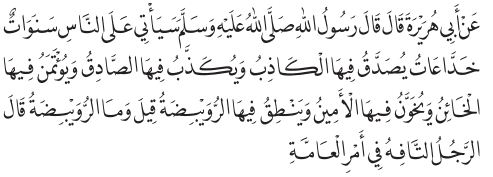 عَنْ أَبِي هُرَيْرَةَ قَالَ قَالَ رَسُولُ اللهِ صَلَّى اللهُ عَلَيْهِ وَسَلَّمَ سَيَأْتِي عَلَى النَّاسِ سَنَوَاتٌ
خَدَّاعَاتُ يُصَدَّقُ فِيهَا الْكَاذِبُ وَيُكَذَّبُ فِيهَا الصَّادِقُ وَيُؤْتَمَنُ فِيهَا
الْخَائِنُ وَيُخَوَّنُ فِيهَا الْأَمِينُ وَيَنْطِقُ فِيهَا الرُّوَيْبِضَةُ قِيلَ وَمَا الرُّوَيْبِضَةُ قَالَ
الرَّجُلُ التَّافِهُ فِي أَمْرِ الْعَامَّةِ